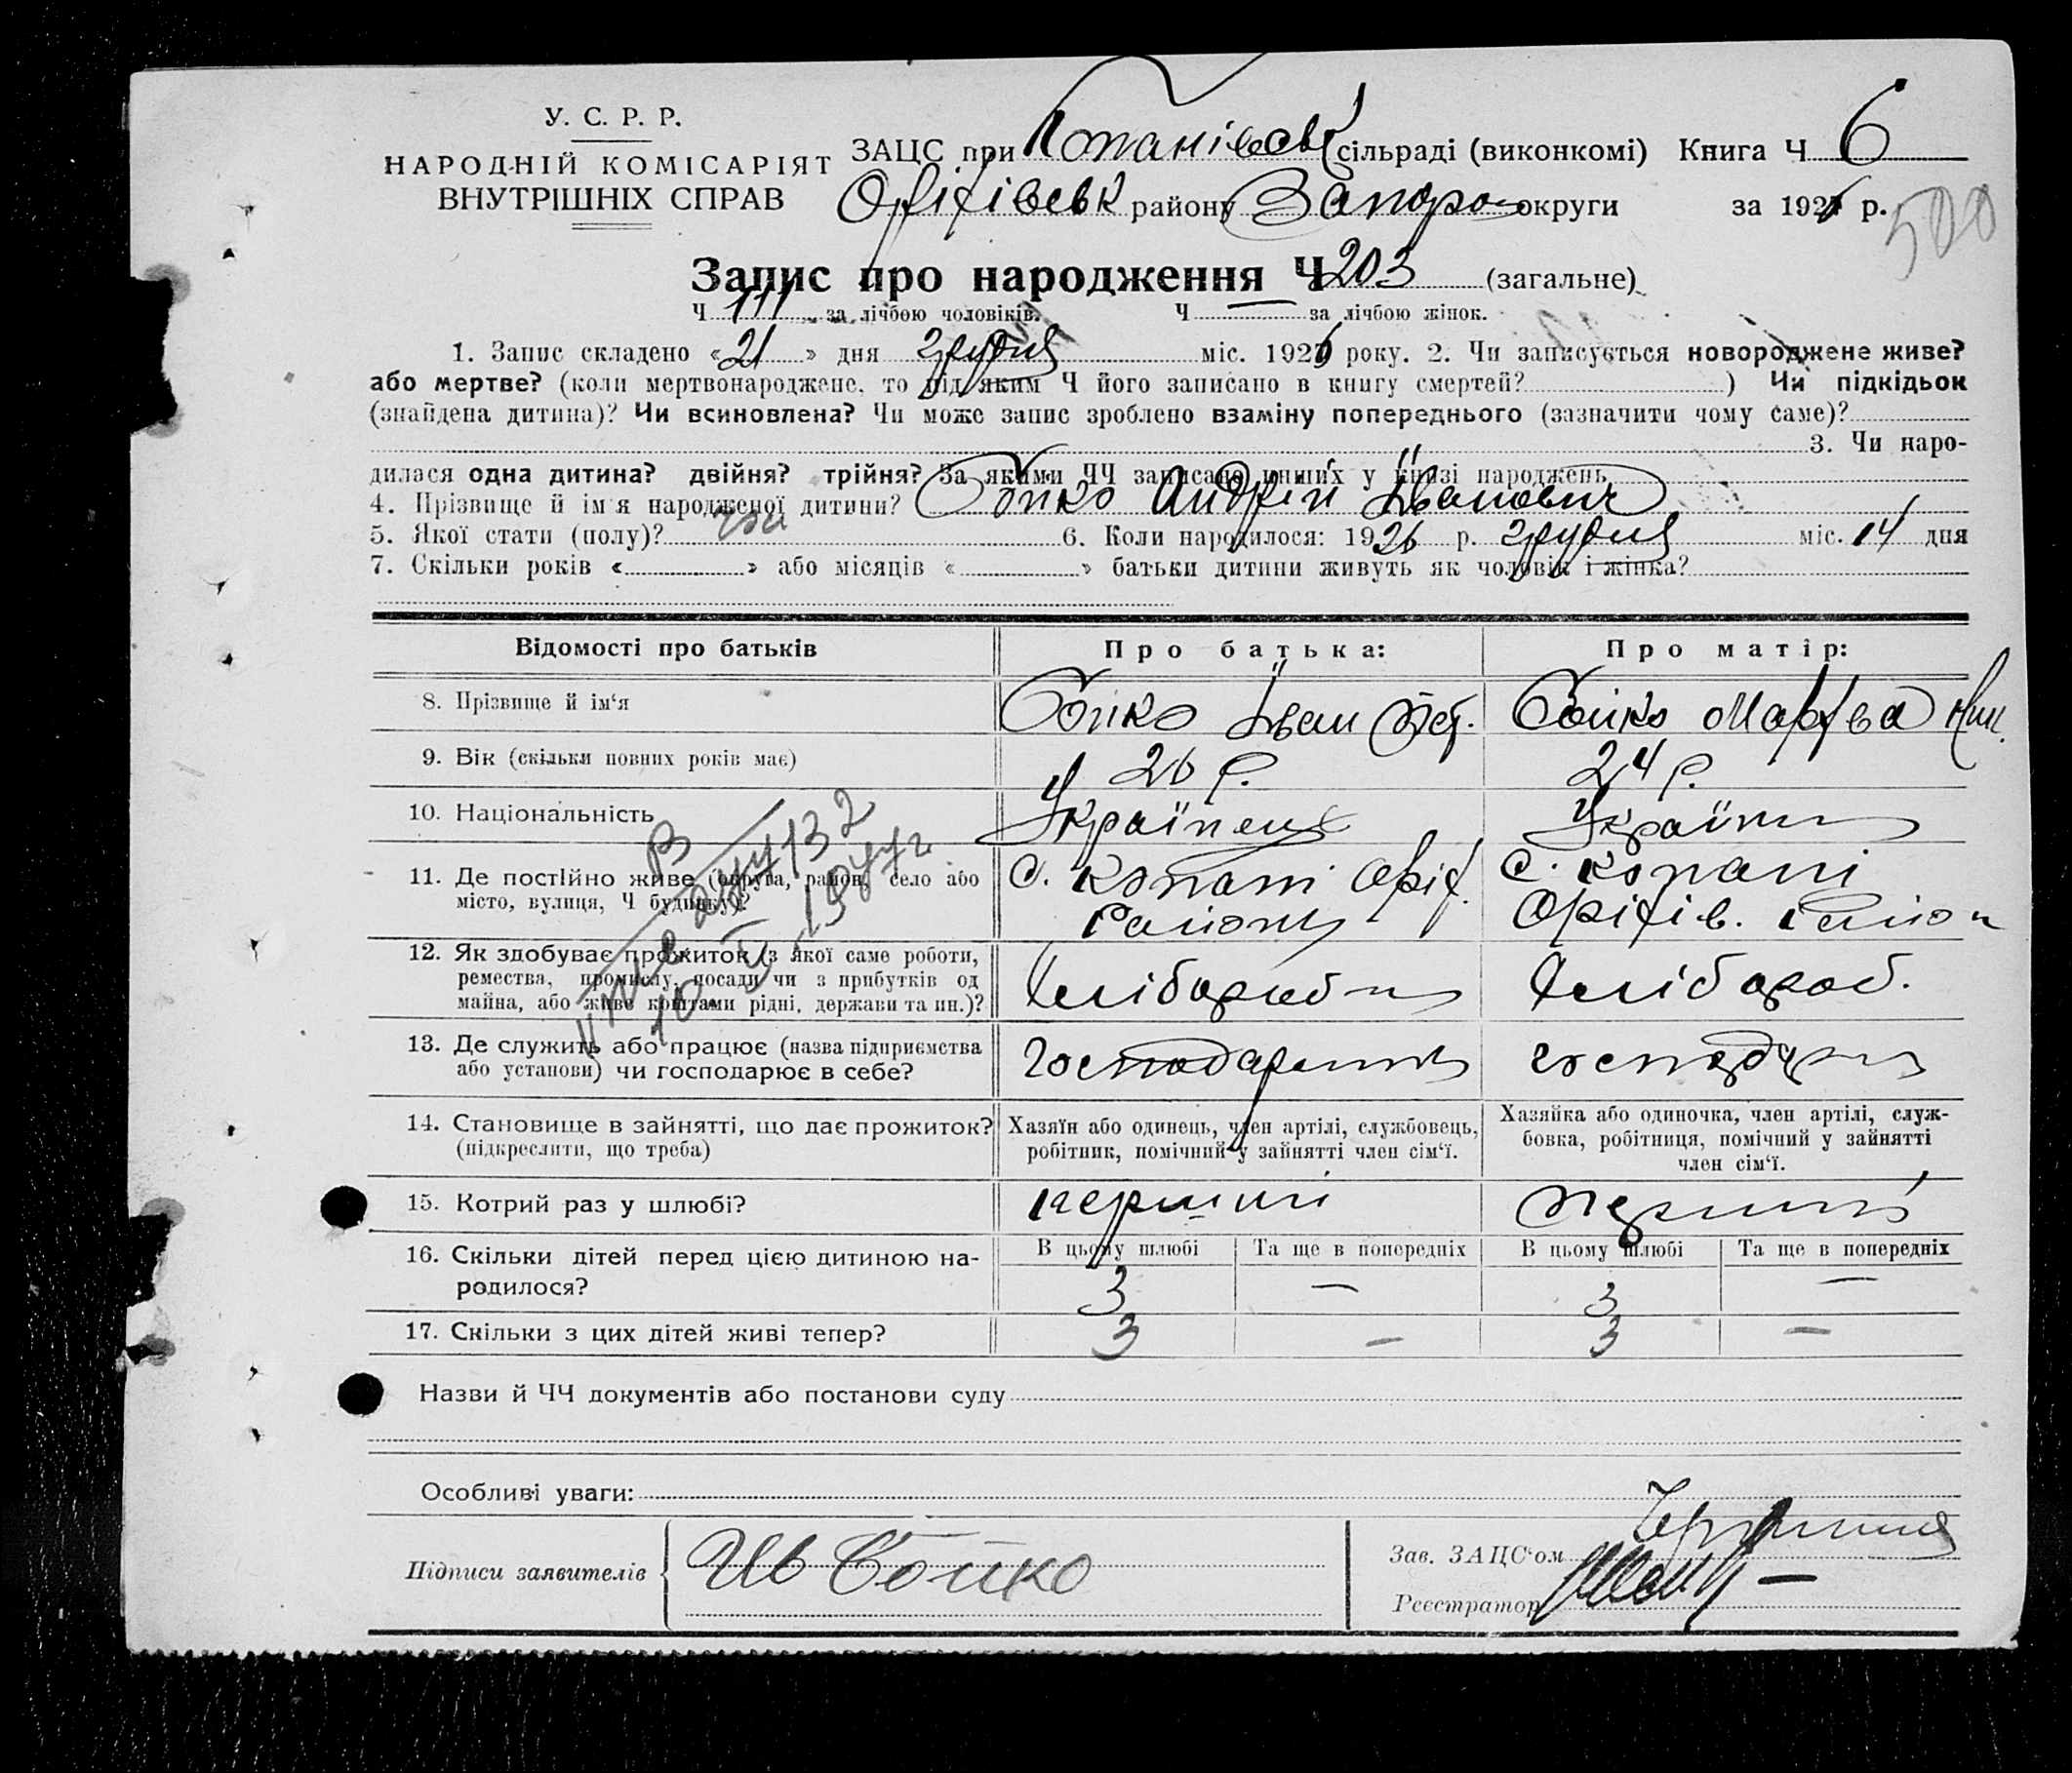 У. С. Р. Р.
НАРОДНІЙ КОМІСАРІЯТ
ВНУТРІШНІХ СПРАВ
ЗАЦС при Копанівськ сільраді (виконкомі) Книга Ч 6
Оріхівськ району Запоро округи за 1926 р.
500
Запис про народження Ч 203 (загальне)
Ч 111 за лічбою чоловіків. Ч — за лічбою жінок.
1. Запис складено «21» дня грудня міс. 1926 року. 2. Чи записується новороджене живе?
або мертве? (коли мертвонароджене, то під яким Ч його записано в книгу смертей? ) Чи підкідьок
(знайдена дитина)? Чи всиновлена? Чи може запис зроблено взаміну попереднього (зазначити чому саме)?
3. Чи наро-
дилася одна дитина? двійня? трійня? За якими ЧЧ записано инших у книзі народжень
4. Прізвище й ім'я народженої дитини? Бойко Андрій Іванович
5. Якої стати (полу)? чол 6. Коли народилося: 1926 р. грудня міс. 14 дня
7. Скільки років « » або місяців « » батьки дитини живуть як чоловік і жінка?
Відомості про батьків Про батька: Про матір:
8. Прізвище й ім‘я Бойко Іван Бойко Марфа
9. Вік (скільки повних років має) 26 р. 24 р.
10. Національність Українець Українка
11. Де постійно живе (округа, район, село або с. Копані Оріх. с. Копані
місто, вулиця, Ч будинку)? району Оріхів. район
12. Як здобуває прожиток (з якої саме роботи,
ремества, промислу, посади чи з прибутків од Хлібороб Хлібороб.
майна, або живе коштами рідні, держави та ин.)?
13. Де служить або працює (назва підприємства
або установи) чи господарює в себе?
14. Становище в зайнятті, що дає прожиток? Хазяїн або одинець, член артілі, службовець, Хазяйка або одиночка, член артілі, служ-
(підкреслити, що треба) робітник, помічний у зайнятті член сім‘ї. бовка, робітниця, помічний у зайнятті
член сім‘ї.
15. Котрий раз у шлюбі? перший перший
16. Скільки дітей перед цією дитиною на- В цьому шлюбі Та ще в попередніх В цьому шлюбі Та ще в попередніх
родилося? 3 — 3 —
17. Скільки з цих дітей живі тепер? 3 — 3 —
Назви й ЧЧ документів або постанови суду
Особливі уваги:
Підписи заявителів Ив Бойко
Зав. ЗАЦС‘ом
Реєстратор